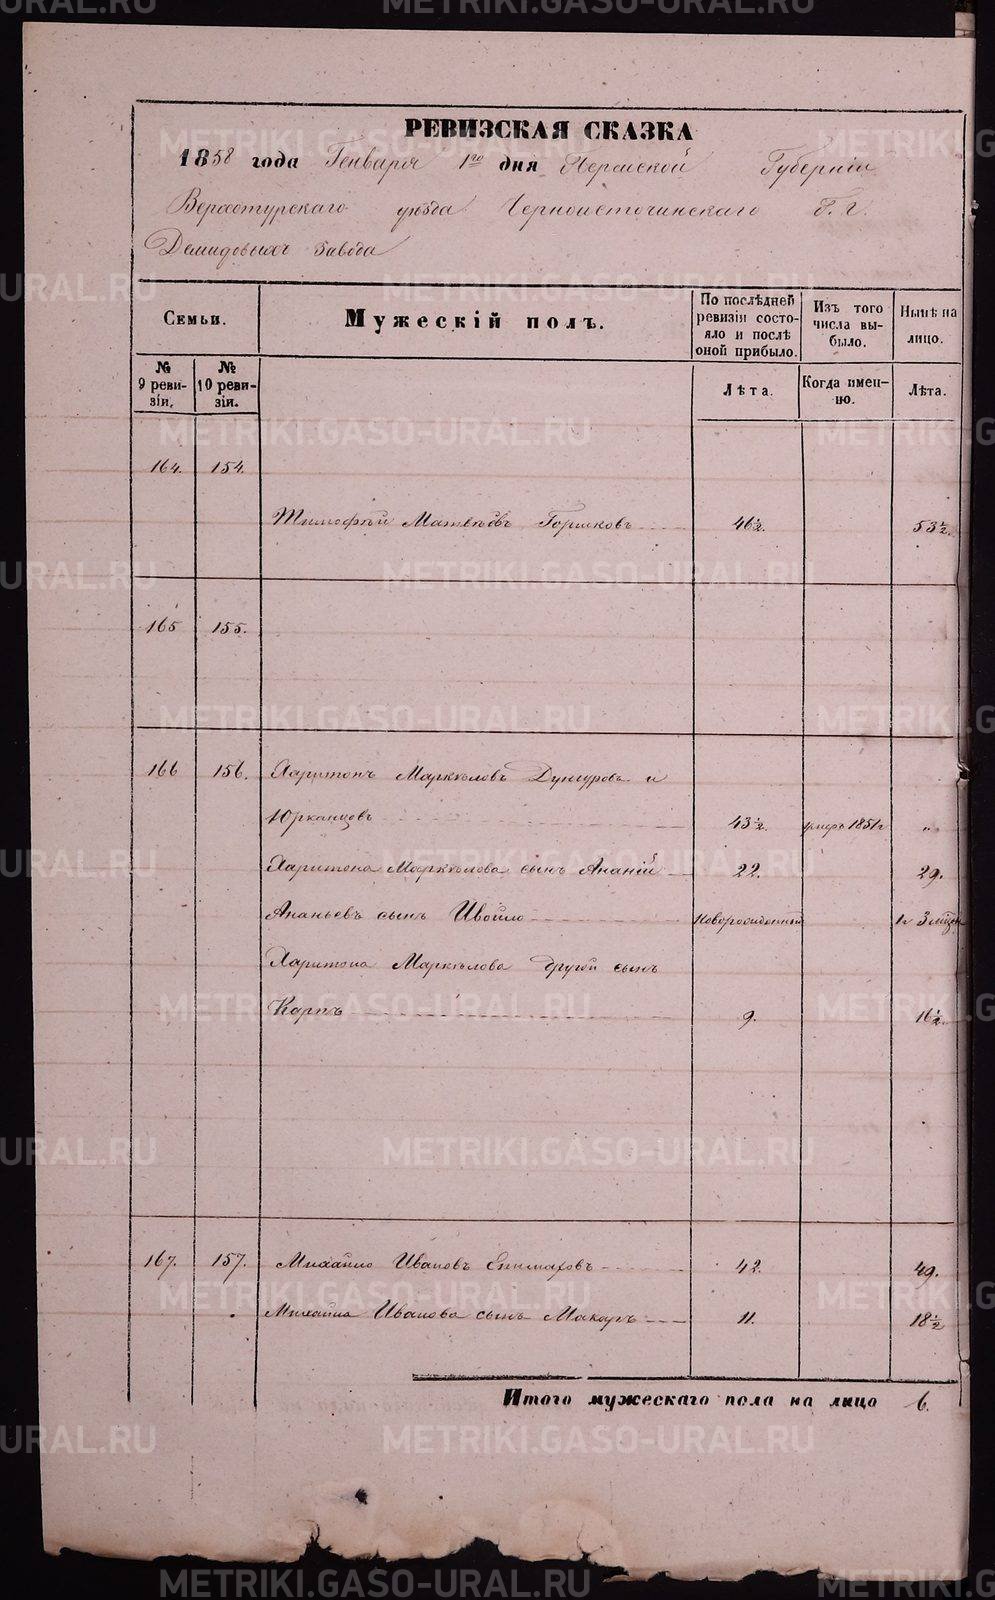 РЕВИЗСКАЯ СКАЗКА
1858 года Генваря 1го дня Пермской Губерніи
Верхотурскаго уѣзда Черноисточинскаго Г. Г.
Демидовыхъ завода
Семьи.
Мужескій полъ.
По послѣдней ревизіи состояло и послѣ оной прибыло.
Изъ того числа выбыло.
Нынѣ на лицо.
№ 9 ревизіи.
№ 10 ревизіи.
Лѣта.
Когда именно.
Лѣта.
164. 154.
Тимофѣй Матвѣевъ Горшковъ 46½. 53½.
165 155.
166 156. Харитонъ Маркѣловъ Дунгуровъ и
Юрканцовъ 43½. умеръ 1851г „
Харитона Маркѣлова сынъ Ананій 22. 29.
Ананьевъ сынъ Ивойло новорожденный 1г 3 мѣсец
Харитона Маркѣлова другой сынъ
Карпъ 9. 16½.
167. 157. Михайло Ивановъ Епимаховъ 42. 49.
Михайла Иванова сынъ Макаръ 11. 18½
Итого мужескаго пола на лицо 6.
METRIKI.GASO-URAL.RU